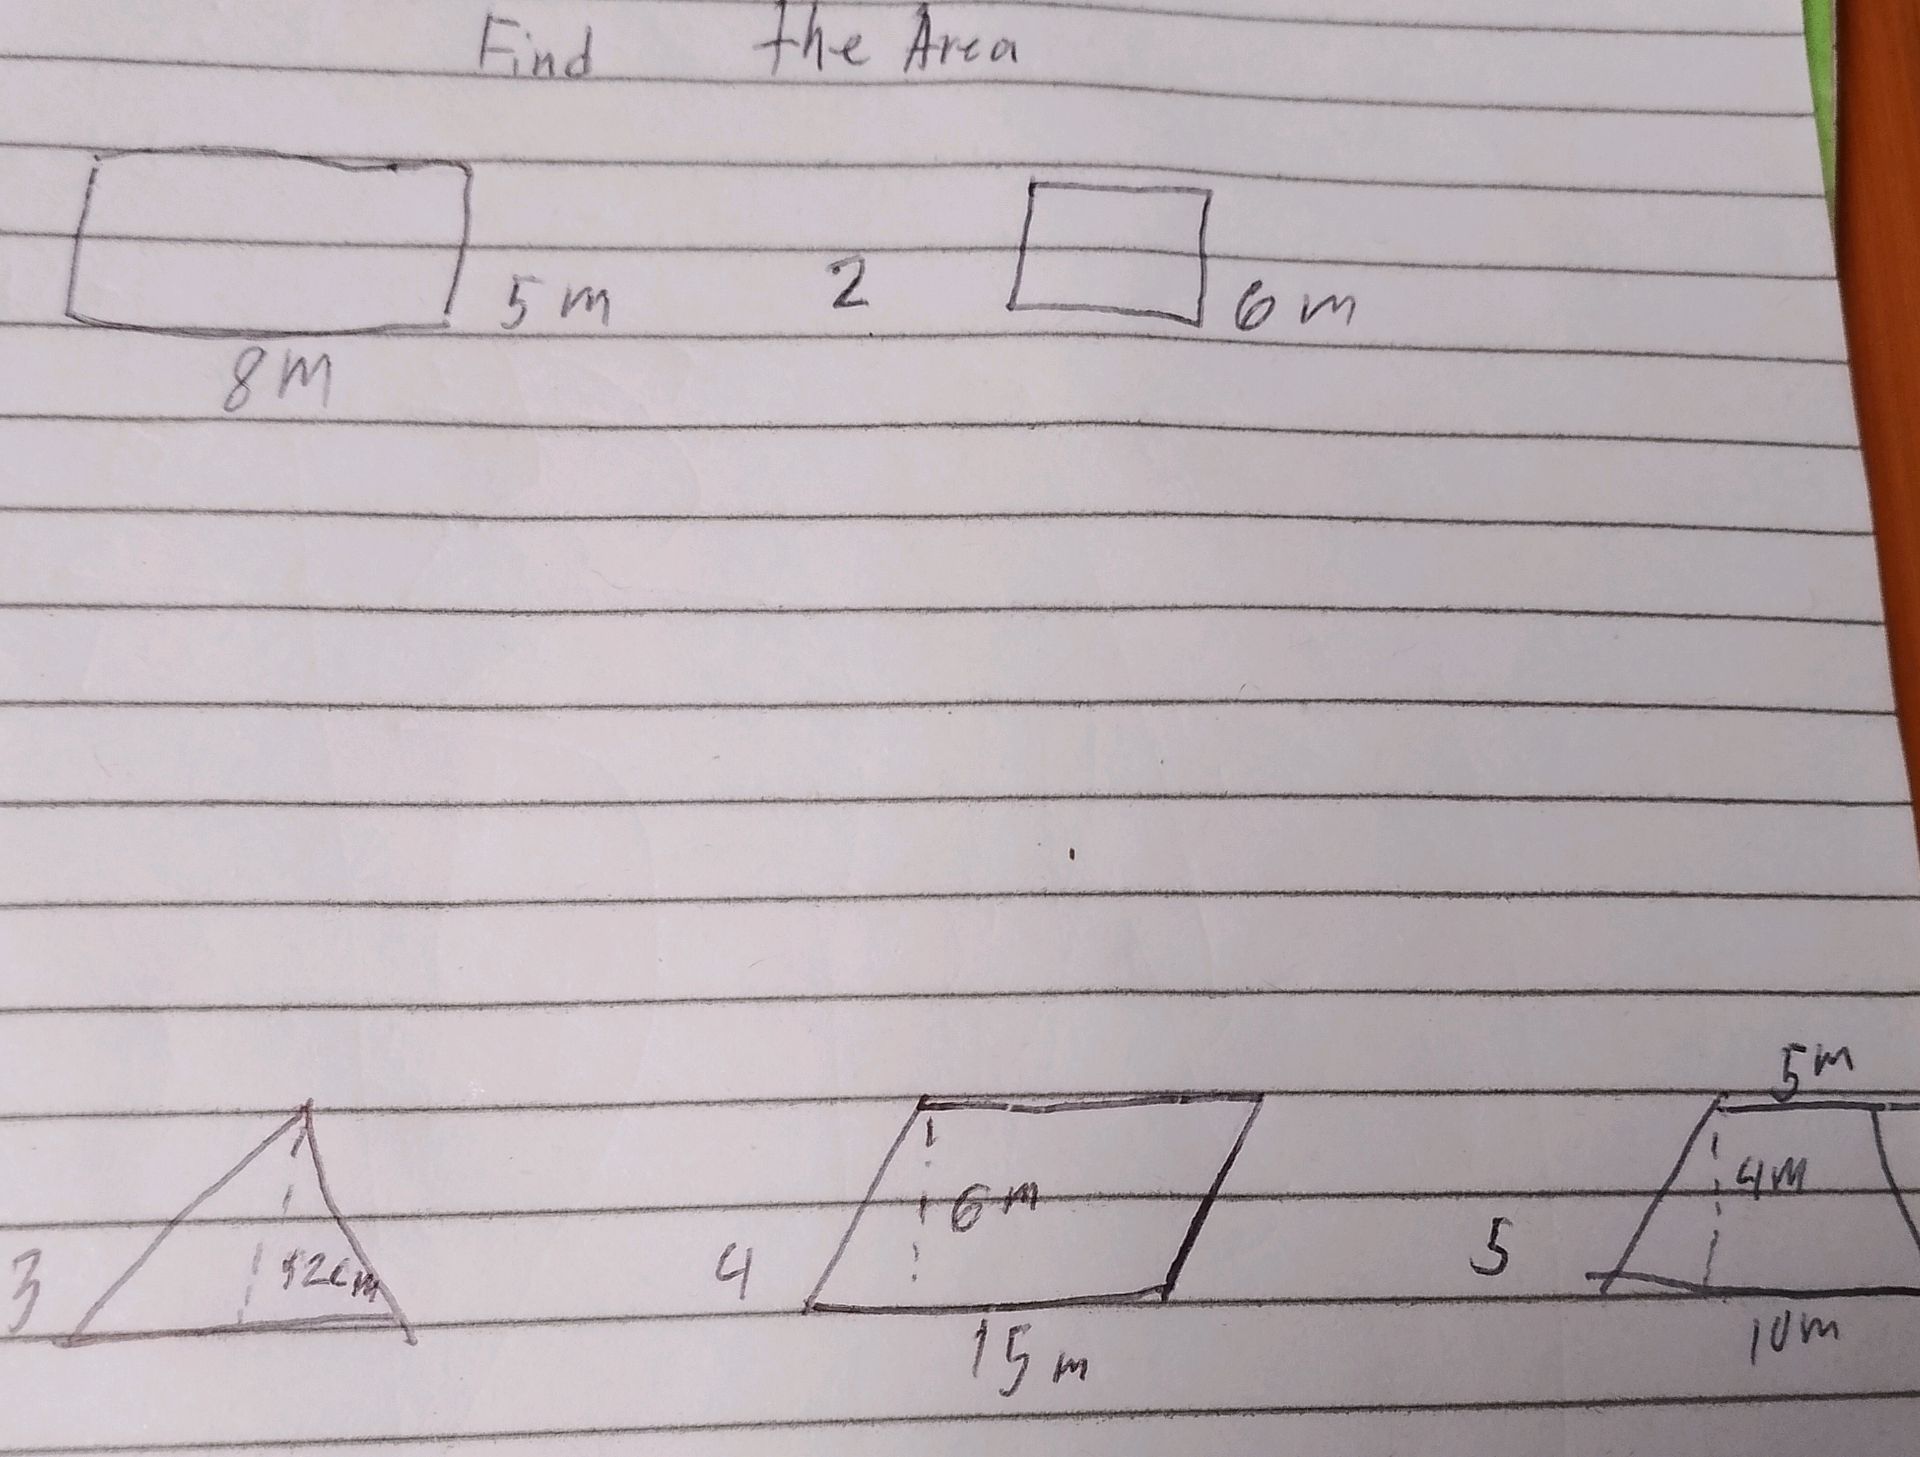 Find the Area
5 m
8 m
2
6 m
3
12 cm
4
6 m
15 m
5
5 m
4 m
10 m